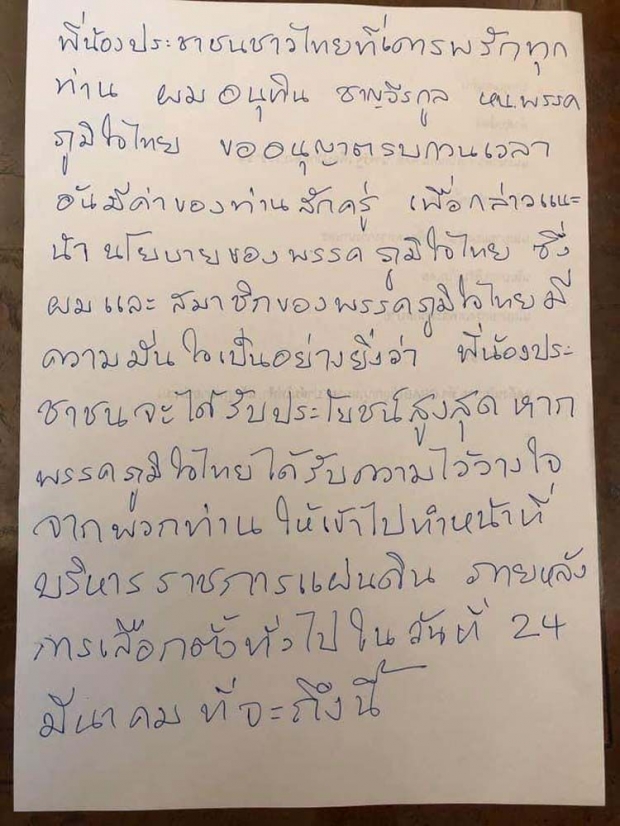 พี่น้องประชาชนชาวไทยที่เคารพรักทุก
ท่าน ผม อนุทิน ชาญวีรกูล หน.พรรค
ภูมิใจไทย ขออนุญาตรบกวนเวลา
อันมีค่าของท่านสักครู่ เพื่อกล่าวแนะ
นำ นโยบายของพรรคภูมิใจไทย ซึ่ง
ผมและสมาชิกของพรรคภูมิใจไทยมี
ความมั่นใจเป็นอย่างยิ่งว่า พี่น้องประ
ชาชนจะได้รับประโยชน์สูงสุด หาก
พรรคภูมิใจไทยได้รับความไว้วางใจ
จากพวกท่าน ให้เข้าไปทำหน้าที่
บริหารราชการแผ่นดิน ภายหลัง
การเลือกตั้งทั่วไปในวันที่ 24
มีนาคม ที่จะถึงนี้